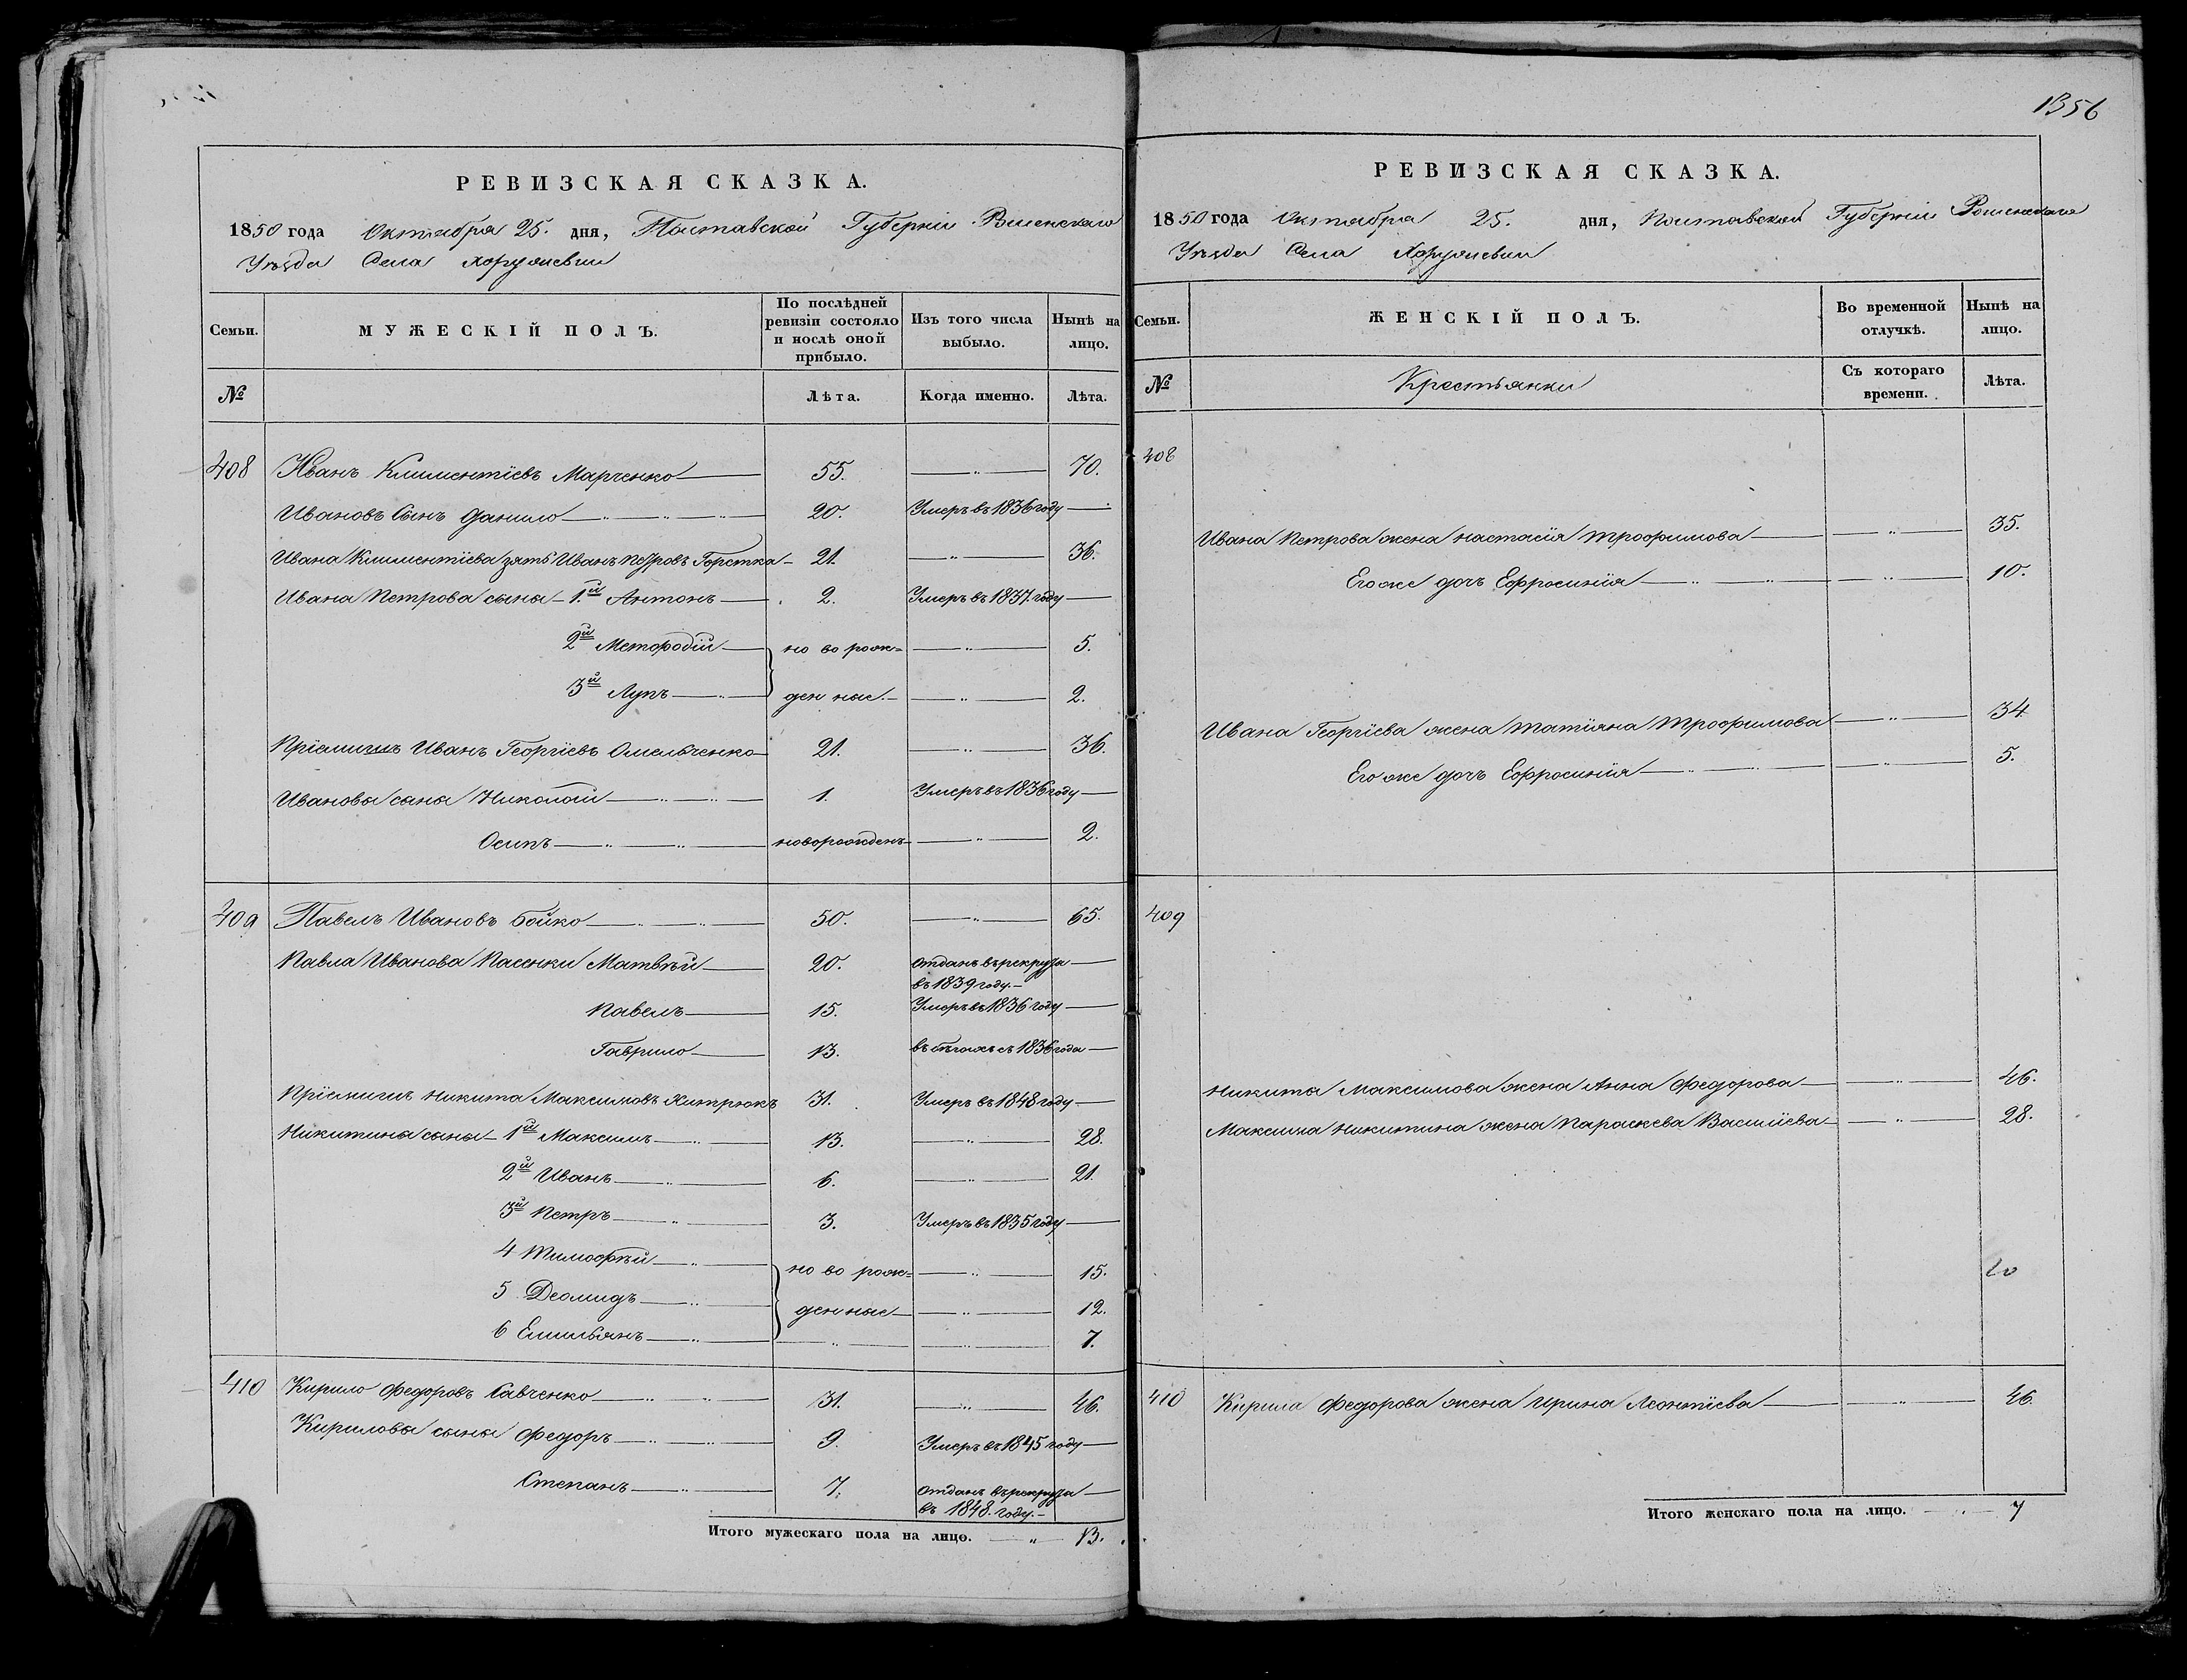 РЕВИЗСКАЯ СКАЗКА.
1850 года Октября 25. дня, Полтавской Губерніи Роменскаго
Уѣзда Села Хоружевки
Семьи.
МУЖЕСКІЙ ПОЛЪ.
По послѣдней ревизіи состояло и послѣ оной прибыло.
Изъ того числа выбыло.
Нынѣ на лицо.
№
Лѣта.
Когда именно.
Лѣта.
408 Иванъ Климентіевъ Марченко 55. 70.
Ивановъ Сынъ Данило 20. Умеръ въ 1836 году
Ивана Климентіева зять Иванъ Петровъ Горстка 21. 36.
Ивана Петрова сыны 1.й Антонъ 2. Умеръ въ 1837. году
2й Мефодій но во рож= 5.
3й Лупъ ден ные. 2.
Пріемишъ Иванъ Георгіевъ Омельченко 21. 36.
Ивановы сыны Николай 1. Умеръ въ 1836 году
Осипъ новорожденъ 2.
409 Павелъ Ивановъ Бойко 50. 65.
Павла Иванова Пасенки Матвѣй 20. отданъ въ рекруты
въ 1839 году.
Павелъ 15. Умеръ въ 1836 году
Гаврило 13. въ бѣгахъ съ 1836 года
Пріемишъ Никита Максимовъ Хитрюкъ 31. Умеръ въ 1848 году
Никитины сыны 1й Максимъ 13. 28.
2й Иванъ 6. 21.
3й Петръ 3. Умеръ въ 1835 году
4 Тимофѣй но во рож= 15.
5 Деомидъ ден ные 12.
6 Емильянъ 7.
410 Кирило Федоровъ Савченко 31. 46.
Кириловы сыны Федоръ 9. Умеръ въ 1845 году
Степанъ 7. отданъ въ рекруты
въ 1848. году.
Итого мужескаго пола на лицо. 13.
1356
РЕВИЗСКАЯ СКАЗКА.
1850 года Октября 25. дня, Полтавской Губерніи Роменскаго
Уѣзда Села Хоружевки
Семьи.
ЖЕНСКІЙ ПОЛЪ.
Во временной отлучкѣ.
Нынѣ на лицо.
№
Крестьянки
Съ котораго времени.
Лѣта.
408
Ивана Петрова жена Настасія Трофимова 35.
Его же дочь Ефросинія 10.
Ивана Георгіева жена Татіяна Трофимова 34
Его же дочь Ефросинія 5.
409
Никиты Максимова жена Анна Федорова 46.
Максима Никитина жена Параскева Василіева 28.
410 Кирила Федорова жена Ирина Леонтіева 46.
Итого женскаго пола на лицо. 7